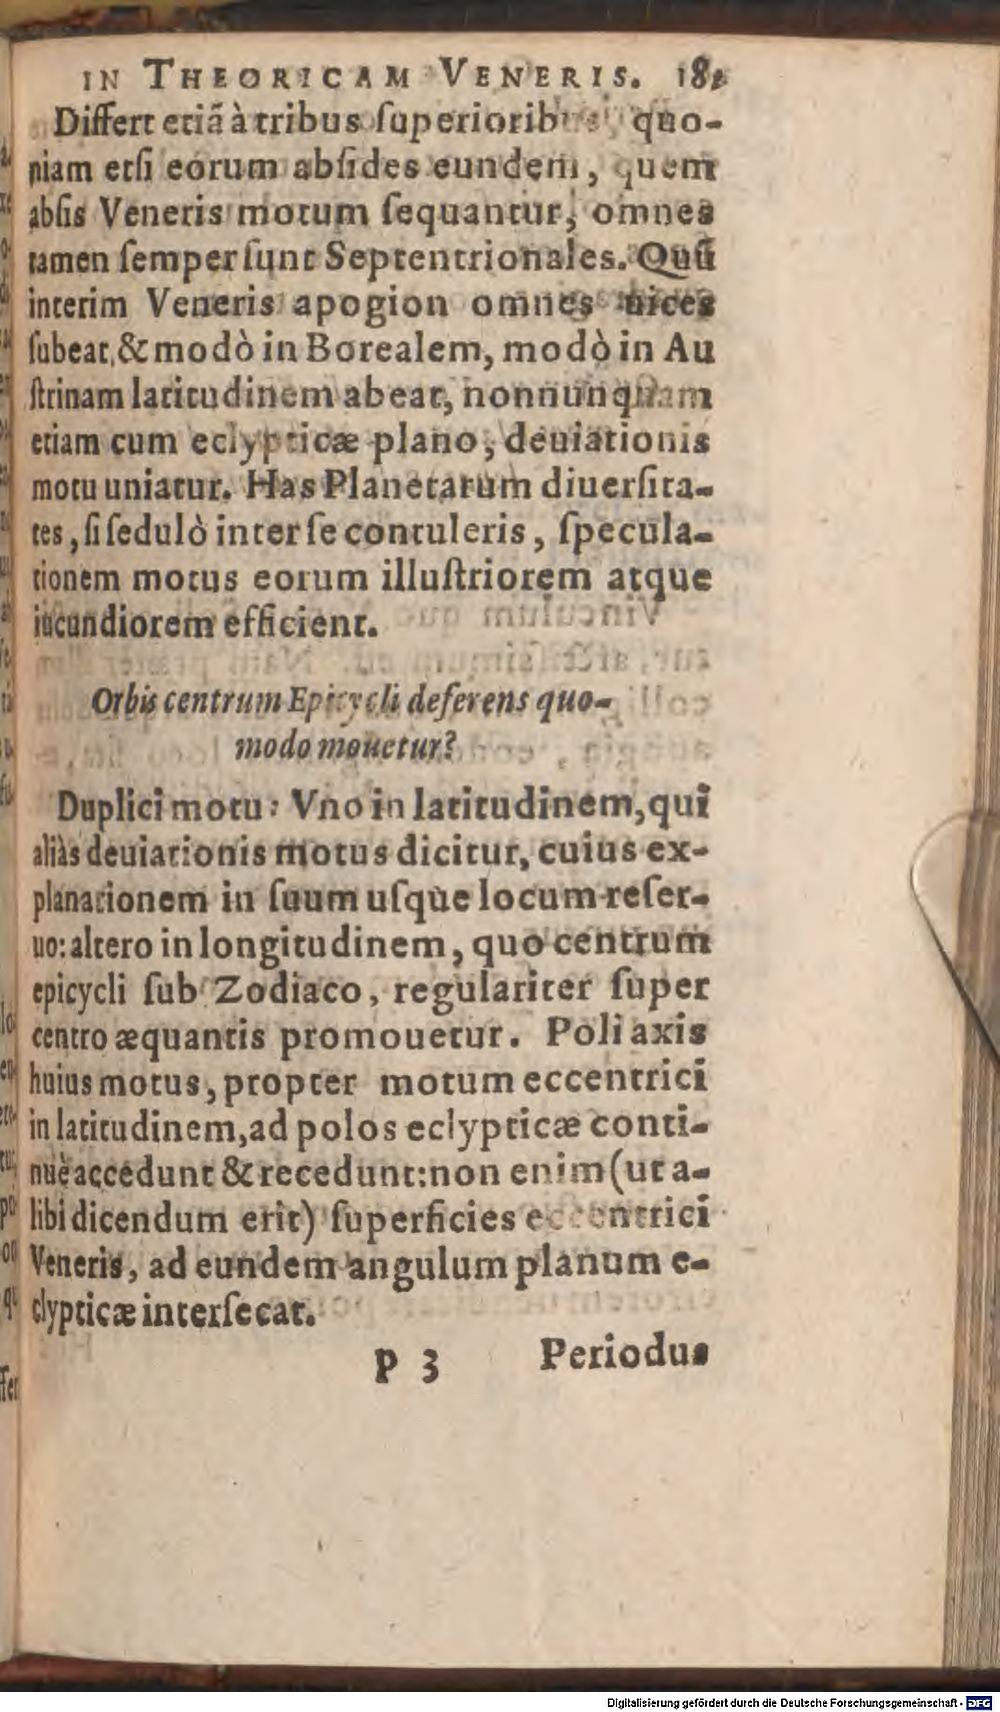 IN THEORICAM VENERIS. 181
Differt etiã à tribus ſuperioribus quo-
niam etſi eorum abſides eundem, quem
abſis Veneris motum ſequantur, omnes
tamen ſemper ſunt Septentrionales. Quũ
interim Veneris apogion omnes uices
ſubeat, & modò in Borealem, modò in Au
ſtrinam latitudinem abeat, nonnunquam
etiam cum eclypticæ plano, deuiationis
motu uniatur. Has Planetarum diuerſita-
tes, ſi ſedulò inter ſe contuleris, ſpecula-
tionem motus eorum illuſtriorem atque
iucundiorem efficient.
Orbis centrum Epicycli deferens quo-
modo mouetur?
Duplici motu: Vno in latitudinem, qui
aliàs deuiationis motus dicitur, cuius ex-
planationem in ſuum uſque locum reſer-
uo: altero in longitudinem, quo centrum
epicycli ſub Zodiaco, regulariter ſuper
centro æquantis promouetur. Poli axis
huius motus, propter motum eccentrici
in latitudinem, ad polos eclypticæ conti-
nuè accedunt & recedunt: non enim (ut a-
libi dicendum erit) ſuperficies eccentrici
Veneris, ad eundem angulum planum e-
clypticæ interſecat.
P 3 Periodus
Digitalisierung gefördert durch die Deutsche Forschungsgemeinschaft - DFG